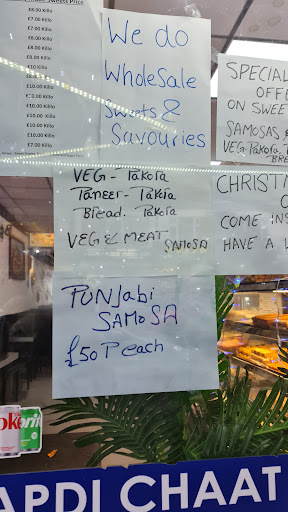 Sweets Price
£8.00 Kilo
£7.00 Kilo
£7.00 Kilo
£8.00 Kilo
£8.00 Kilo
£10.00 Kilo
£10.00 Kilo
£10.00 Kilo
£10.00 Kilo
£10.00 Kilo
£7.00 Kilo
We do
WholeSale
Sweets &
Savouries
SPECIAL
OFFE
ON SWEET
SAMOSAS &
VEG-Pakora,
BRE
VEG - Pakora
Paneer - Pakora
Bread. Pakora
VEG & MEAT SAMOSA
CHRISTM
COME INS
HAVE A
PUNJabi
SAMOSA
£50P each
APDI CHAAT